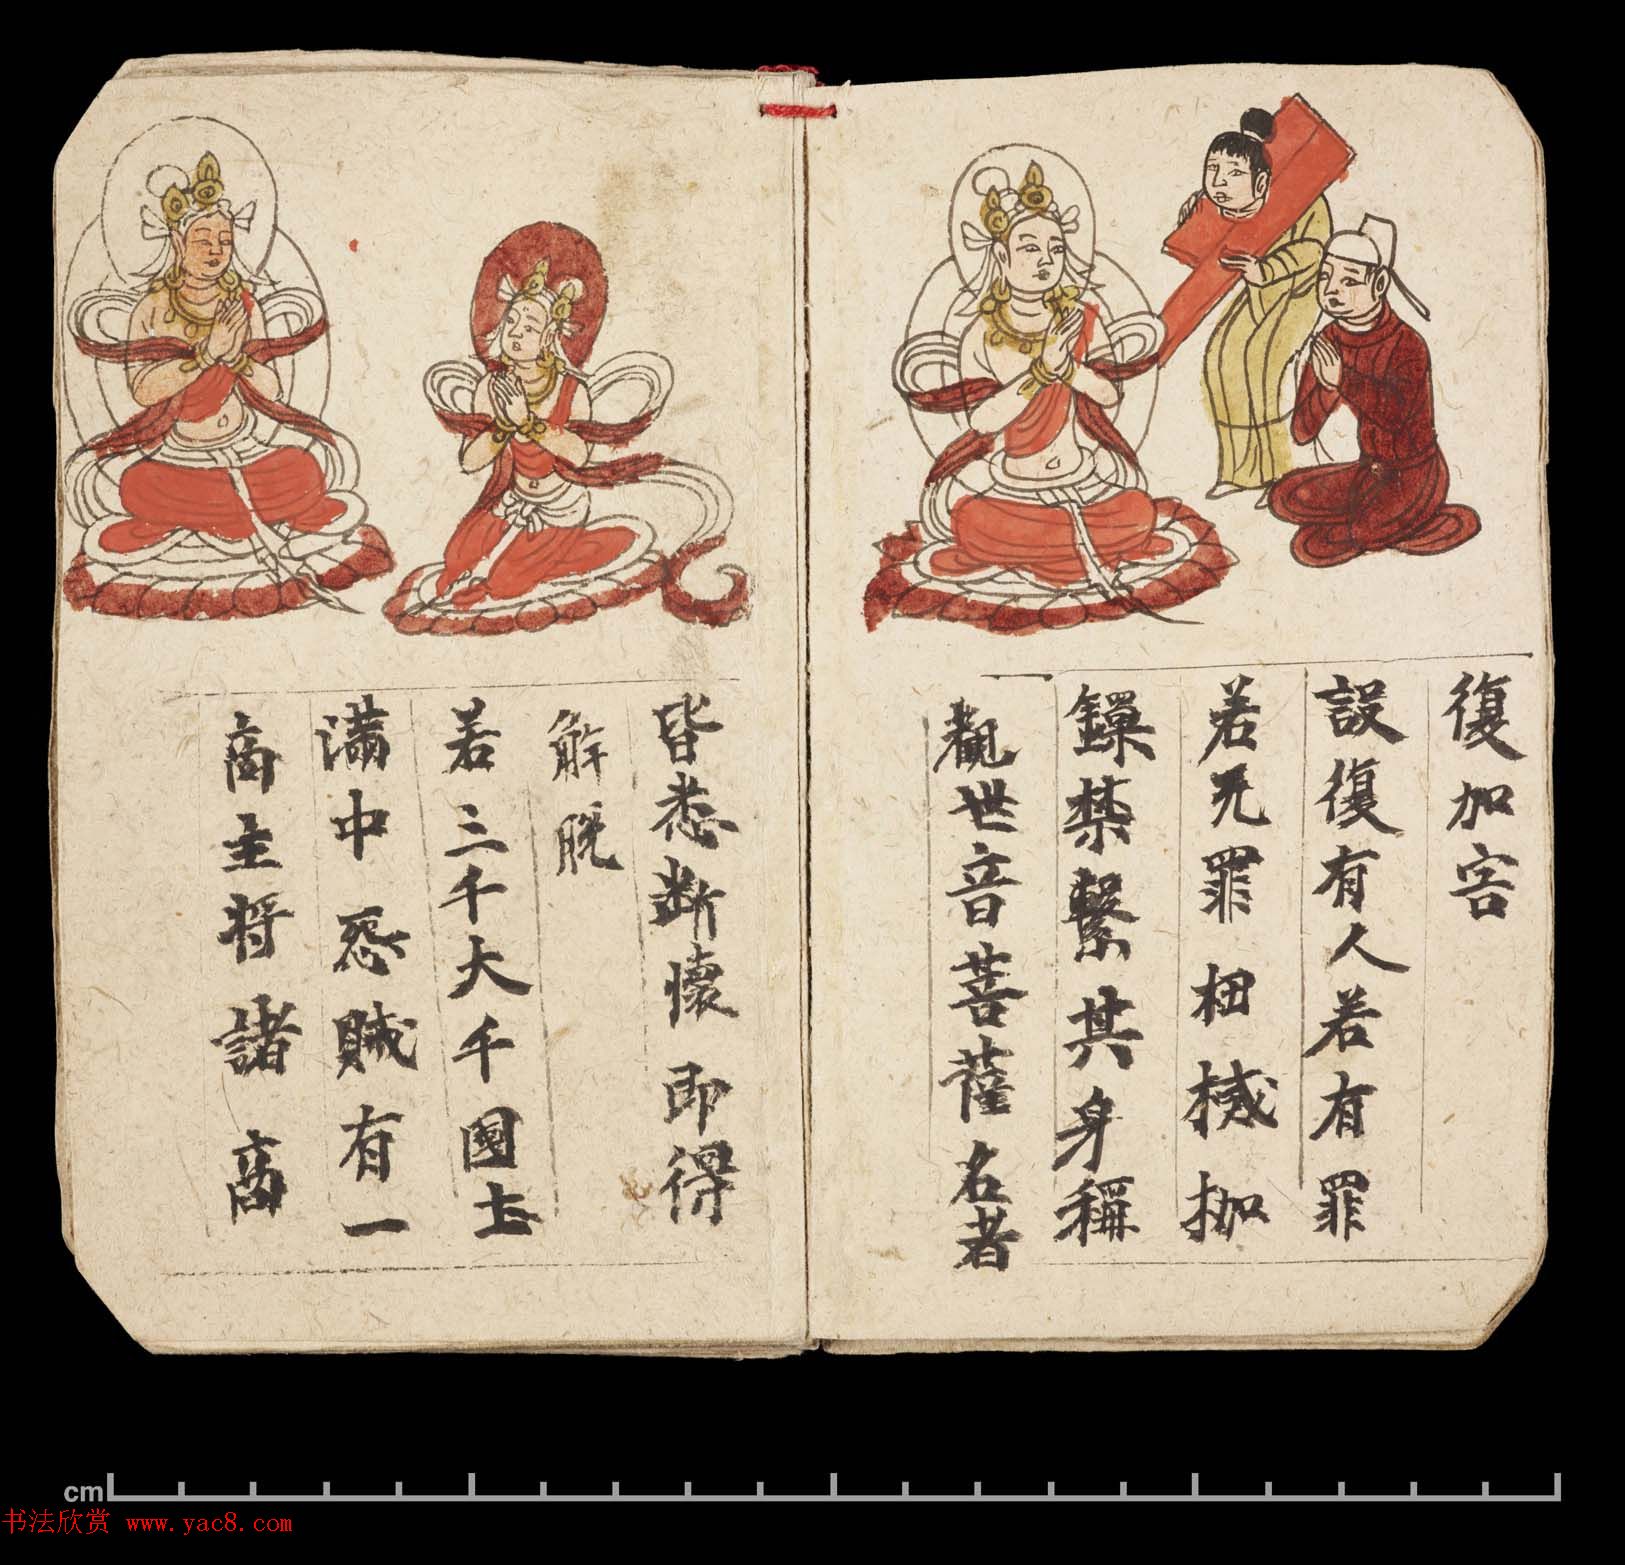 復加害
設復有人若有罪
若无罪杻械枷
鏁禁繫其身稱
觀世音菩薩名者
皆悉断懷即得
解脱
若三千大千國土
满中怨賊有一
商主将諸商
cm
书法欣赏 www.yac8.com